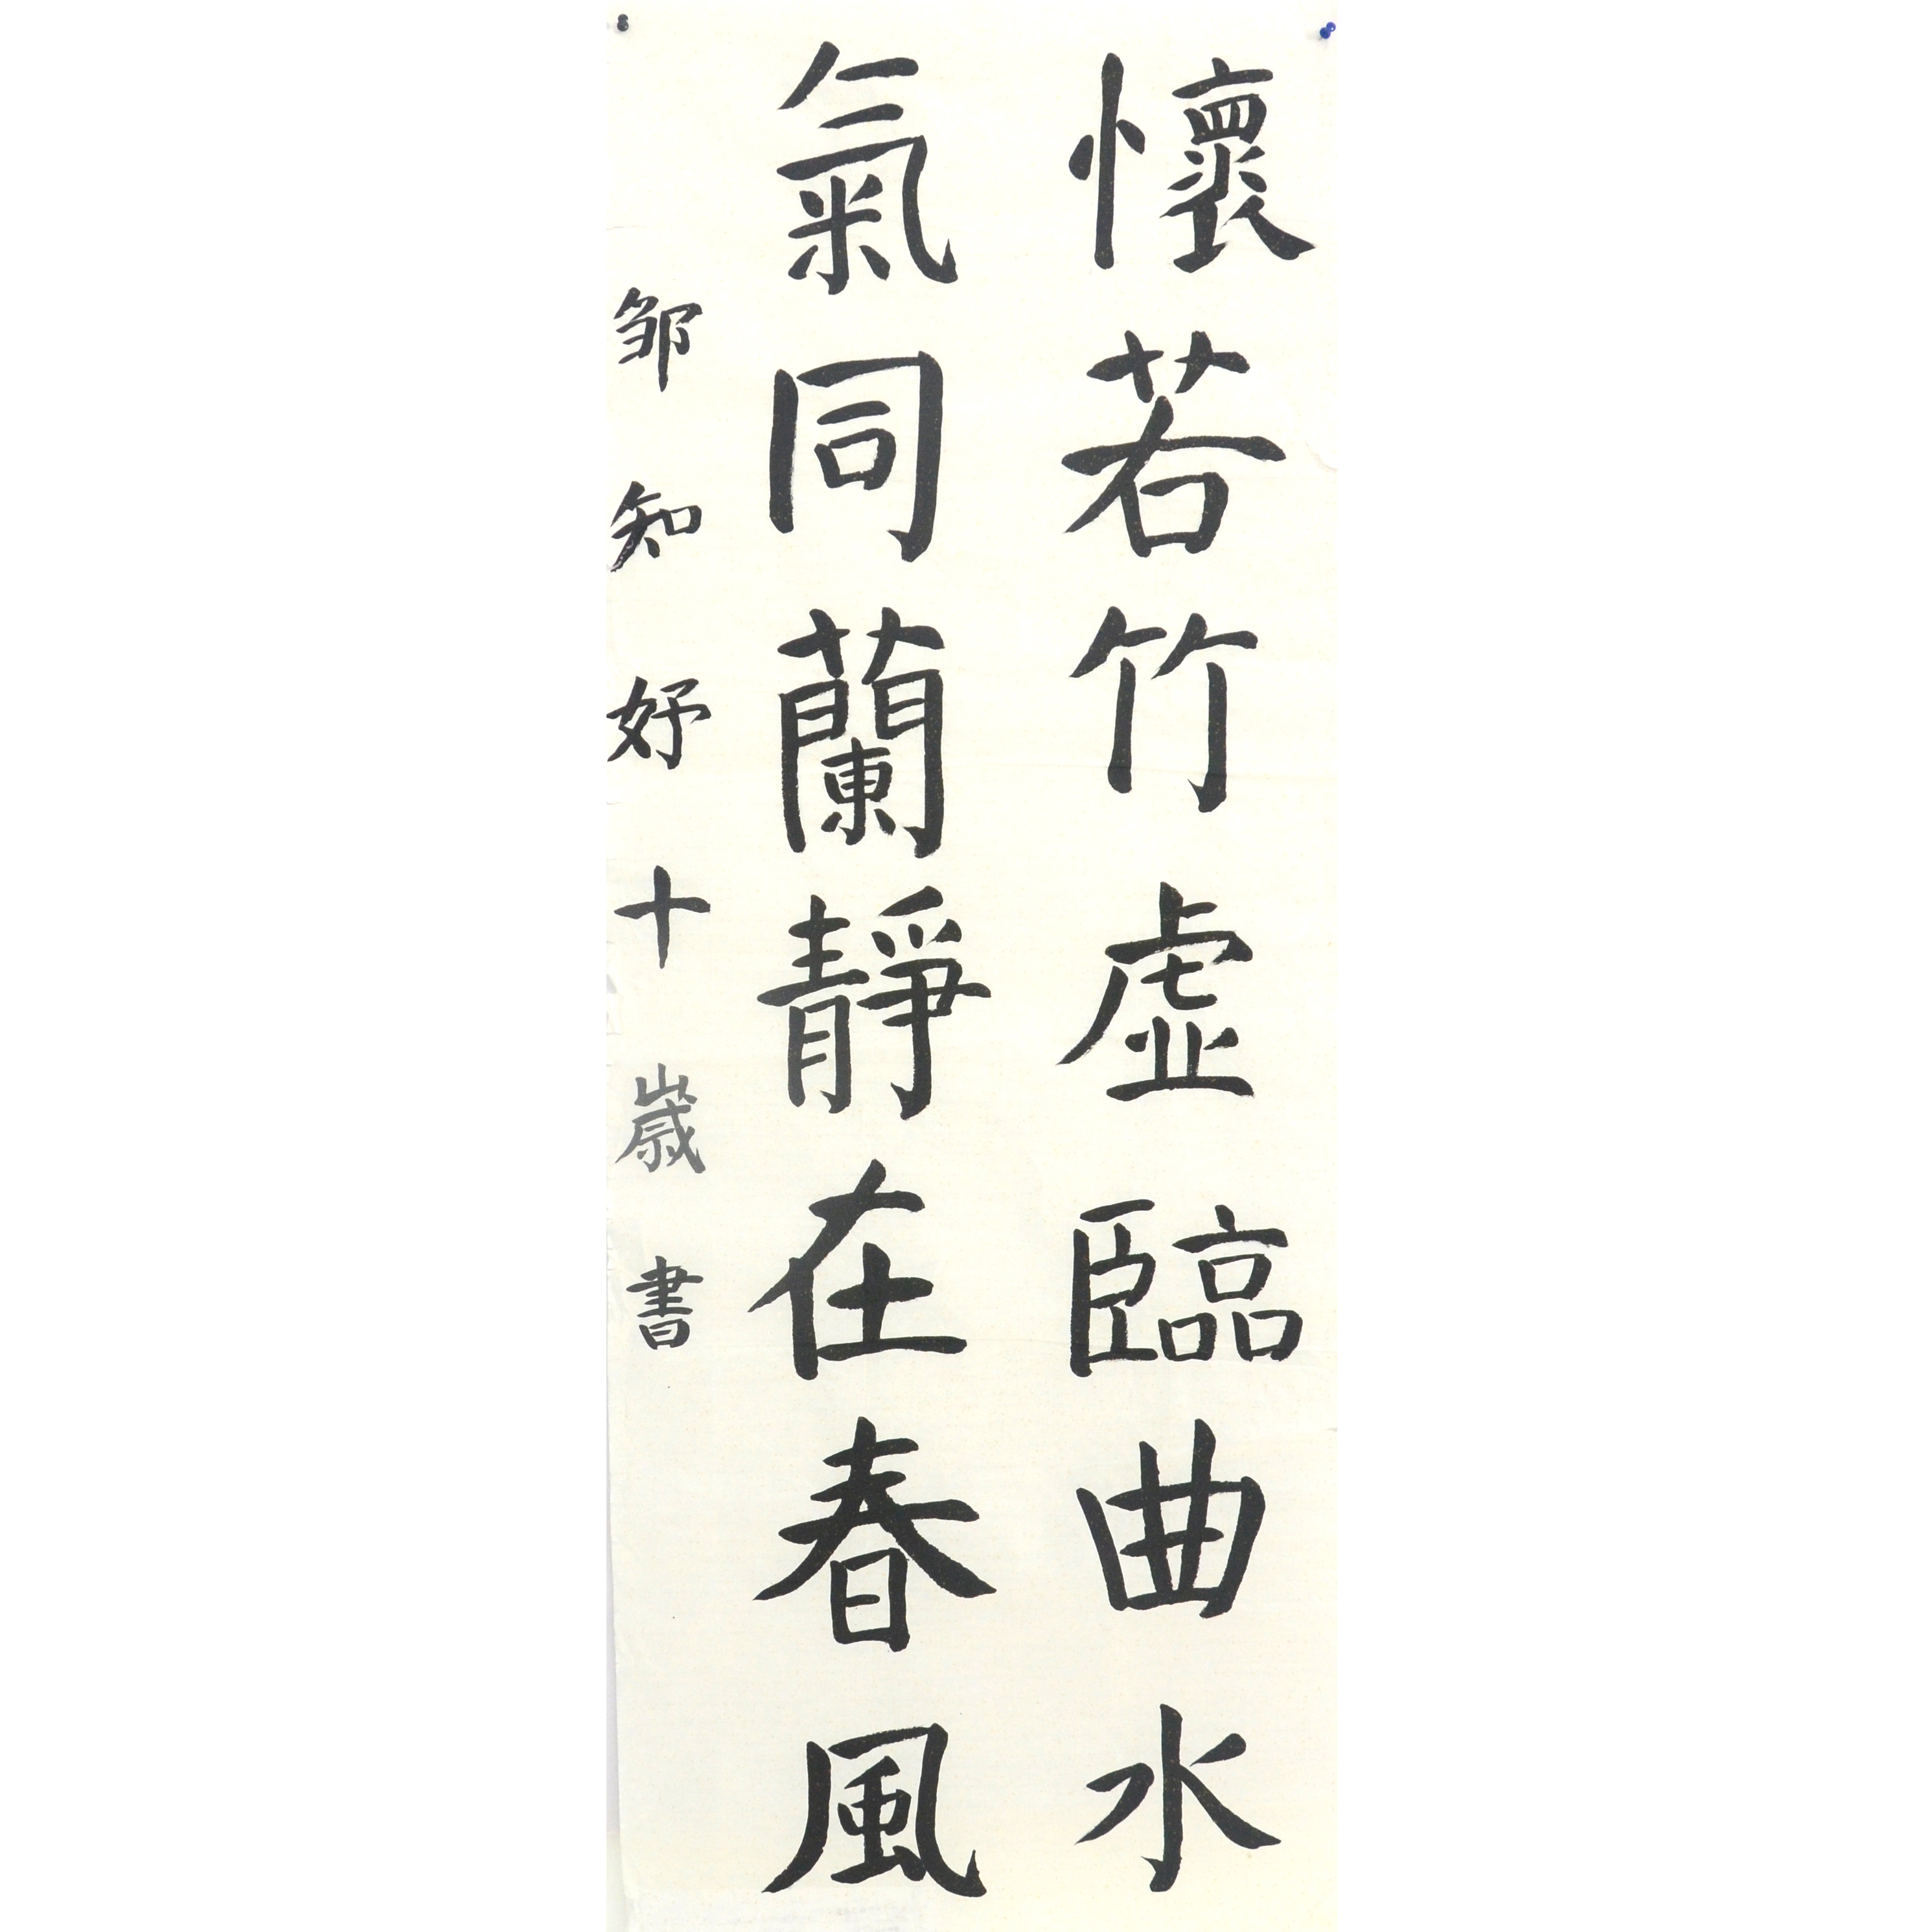 懷若竹虛臨曲水
氣同蘭靜在春風
邹知妤十歲書